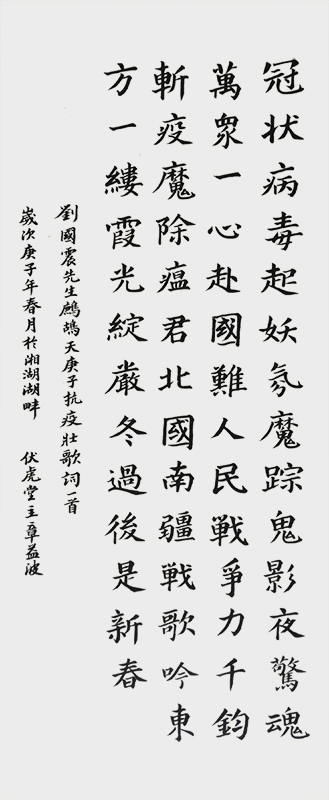 冠状病毒起妖氛魔踪鬼影夜驚魂
萬眾一心赴國難人民戰爭力千鈞
斬疫魔除瘟君北國南疆戰歌吟東
方一縷霞光綻嚴冬過後是新春
劉國震先生鷓鴣天庚子抗疫壯歌詞一首
歲次庚子年春月於湘湖湖畔 伏虎堂主章益波